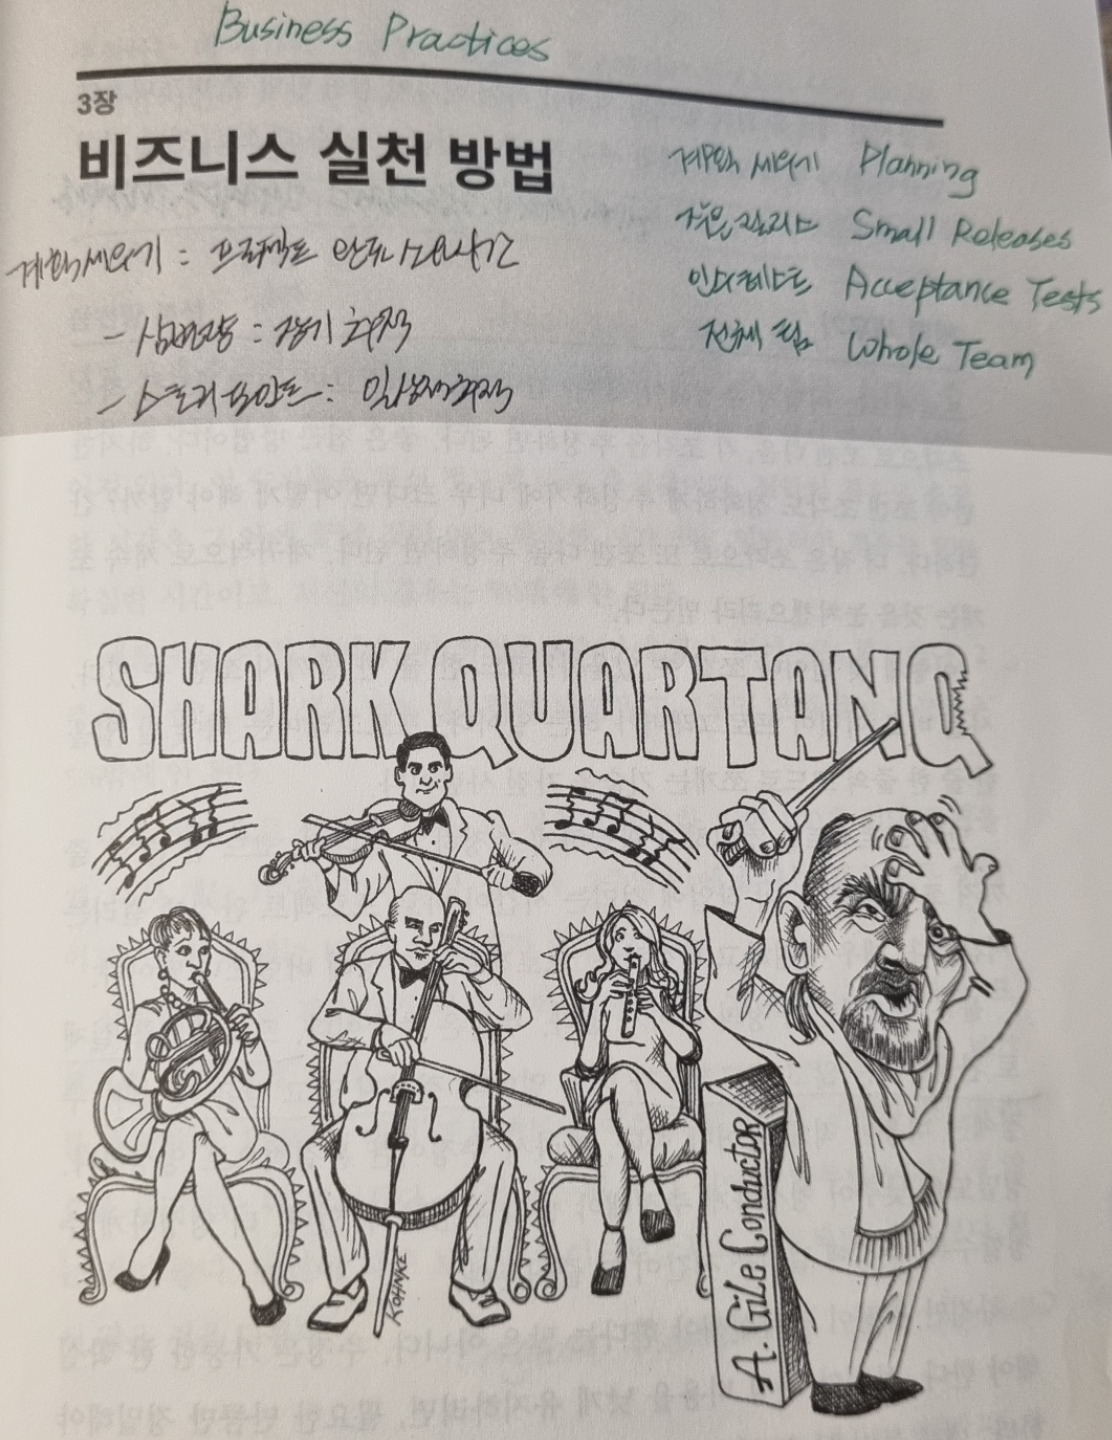 Business Practices
3장
비즈니스 실천 방법
계획 세우기 Planning
작은 릴리스 Small Releases
인수 테스트 Acceptance Tests
전체 팀 Whole Team
계획 세우기 : 프로젝트
- 삼변량 : 장기 추정
- 스토리 포인트 :
SHARK QUARTANQ
A. GiLe Conductor
KOHNKE